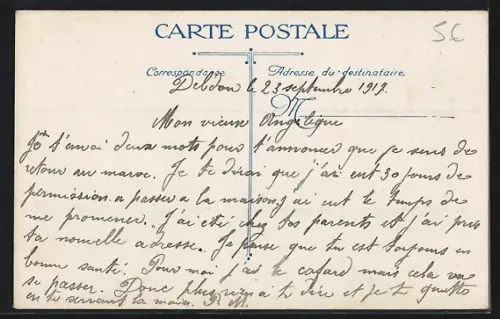 CARTE POSTALE
5€
Correspondance
Adresse du destinataire
Debdou le 23 septembre 1917.
M
Mon vieux Angélique
Je t'envoi deux mots pour t'annoncer que je suis de
retour au maroc. Je te dirai que j'ai eut 30 jours de
permission a passer a la maison, j'ai eut le temps de
me promener. J'ai été chez tes parents et j'ai pris
ta nouvelle adresse. Je pense que tu est toujours en
bonne santé. Pour moi j'ai le cafard mais cela va
se passer. Donc plus rien a te dire et je te quitte
en te serrant la main. P. M.